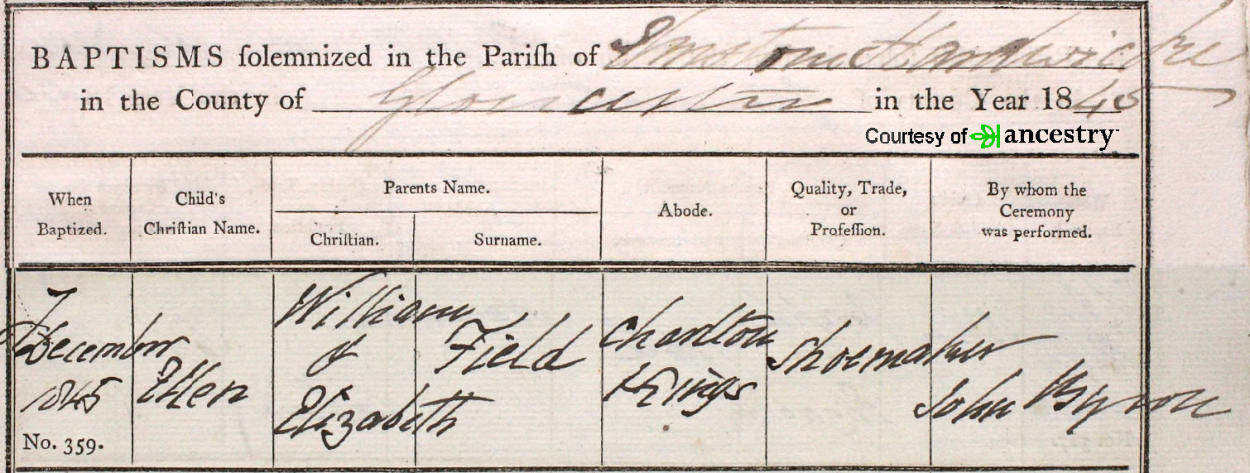 BAPTISMS solemnized in the Parish of Elmstone Hardwicke
in the County of Gloucester in the Year 1845
Courtesy of ancestry
When Baptized.
Child's Christian Name.
Parents Name.
Christian.
Surname.
Abode.
Quality, Trade, or Profession.
By whom the Ceremony was performed.
7
December
1845
No. 359.
Ellen
William
&
Elizabeth
Field
Charlton
Kings
Shoemaker
John Byron